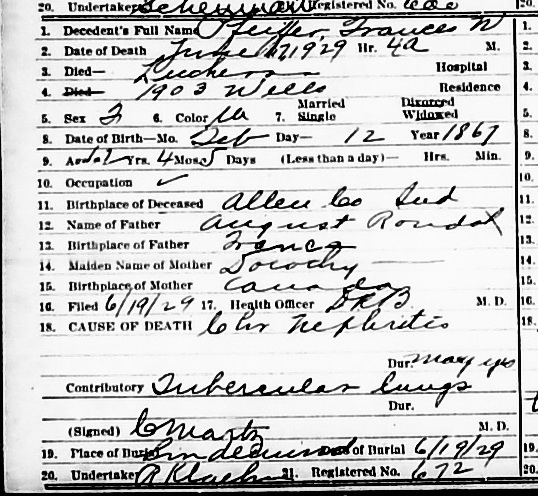 20. Undertaker Registered No.
1. Decedent's Full Name Pfeiffer, Frances W
2. Date of Death June 17 1929 Hr. 4a M.
3. Died— Luthern Hospital
4. Died— 1903 Wells Residence
5. Sex F 6. Color W 7. Married Single Divorced Widowed
8. Date of Birth—Mo. Feb Day— 12 Year 1867
9. Age 62 Yrs. 4 Mos. 5 Days (Less than a day)— Hrs. Min.
10. Occupation ✓
11. Birthplace of Deceased Allen Co Ind
12. Name of Father August Rondot
13. Birthplace of Father France
14. Maiden Name of Mother Dorothy —
15. Birthplace of Mother Canada
16. Filed 6/19/29 17. Health Officer DRB M. D.
18. CAUSE OF DEATH Chr Nephritis
Dur. Many yrs
Contributory Tubercular Lungs
Dur.
(Signed) C Martz M. D.
19. Place of Burial Lindenwood Date of Burial 6/19/29
20. Undertaker 21. Registered No. 672